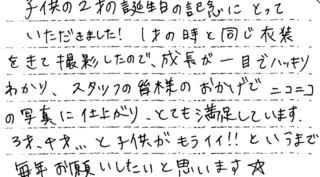 子供の2才の誕生日の記念にとって
いただきました！1才の時と同じ衣装
をきて撮影したので、成長が一目でハッキリ
わかり、スタッフの皆様のおかげでニコニコ
の写真に仕上がり、とても満足しています。
3才、4才…と子供がもうイイ!!というまで
毎年お願いしたいと思います☆